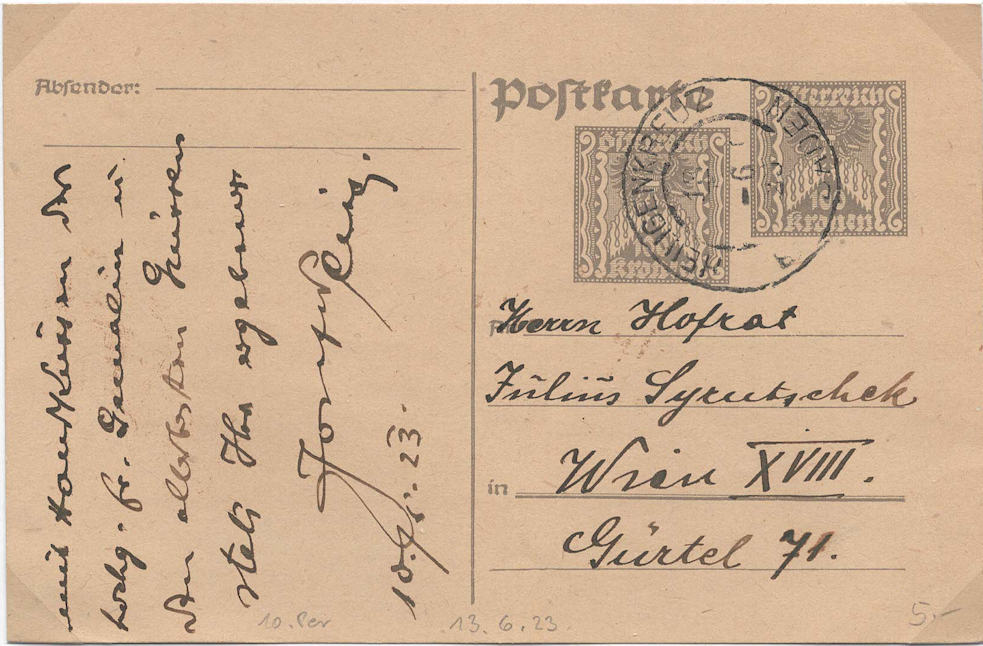 Absender:
Postkarte
Österreich
Kronen
Österreich
Kronen
HEILIGENKREUZ
Herrn Hofrat
Julius Syrutschek
in Wien XVIII.
Gürtel 71.
mit Handküssen der
hochg. fr. Gemalin u.
den allerbesten Grüssen
stets Ihr ergebener
23.
10. Per
13. 6. 23.
5.-